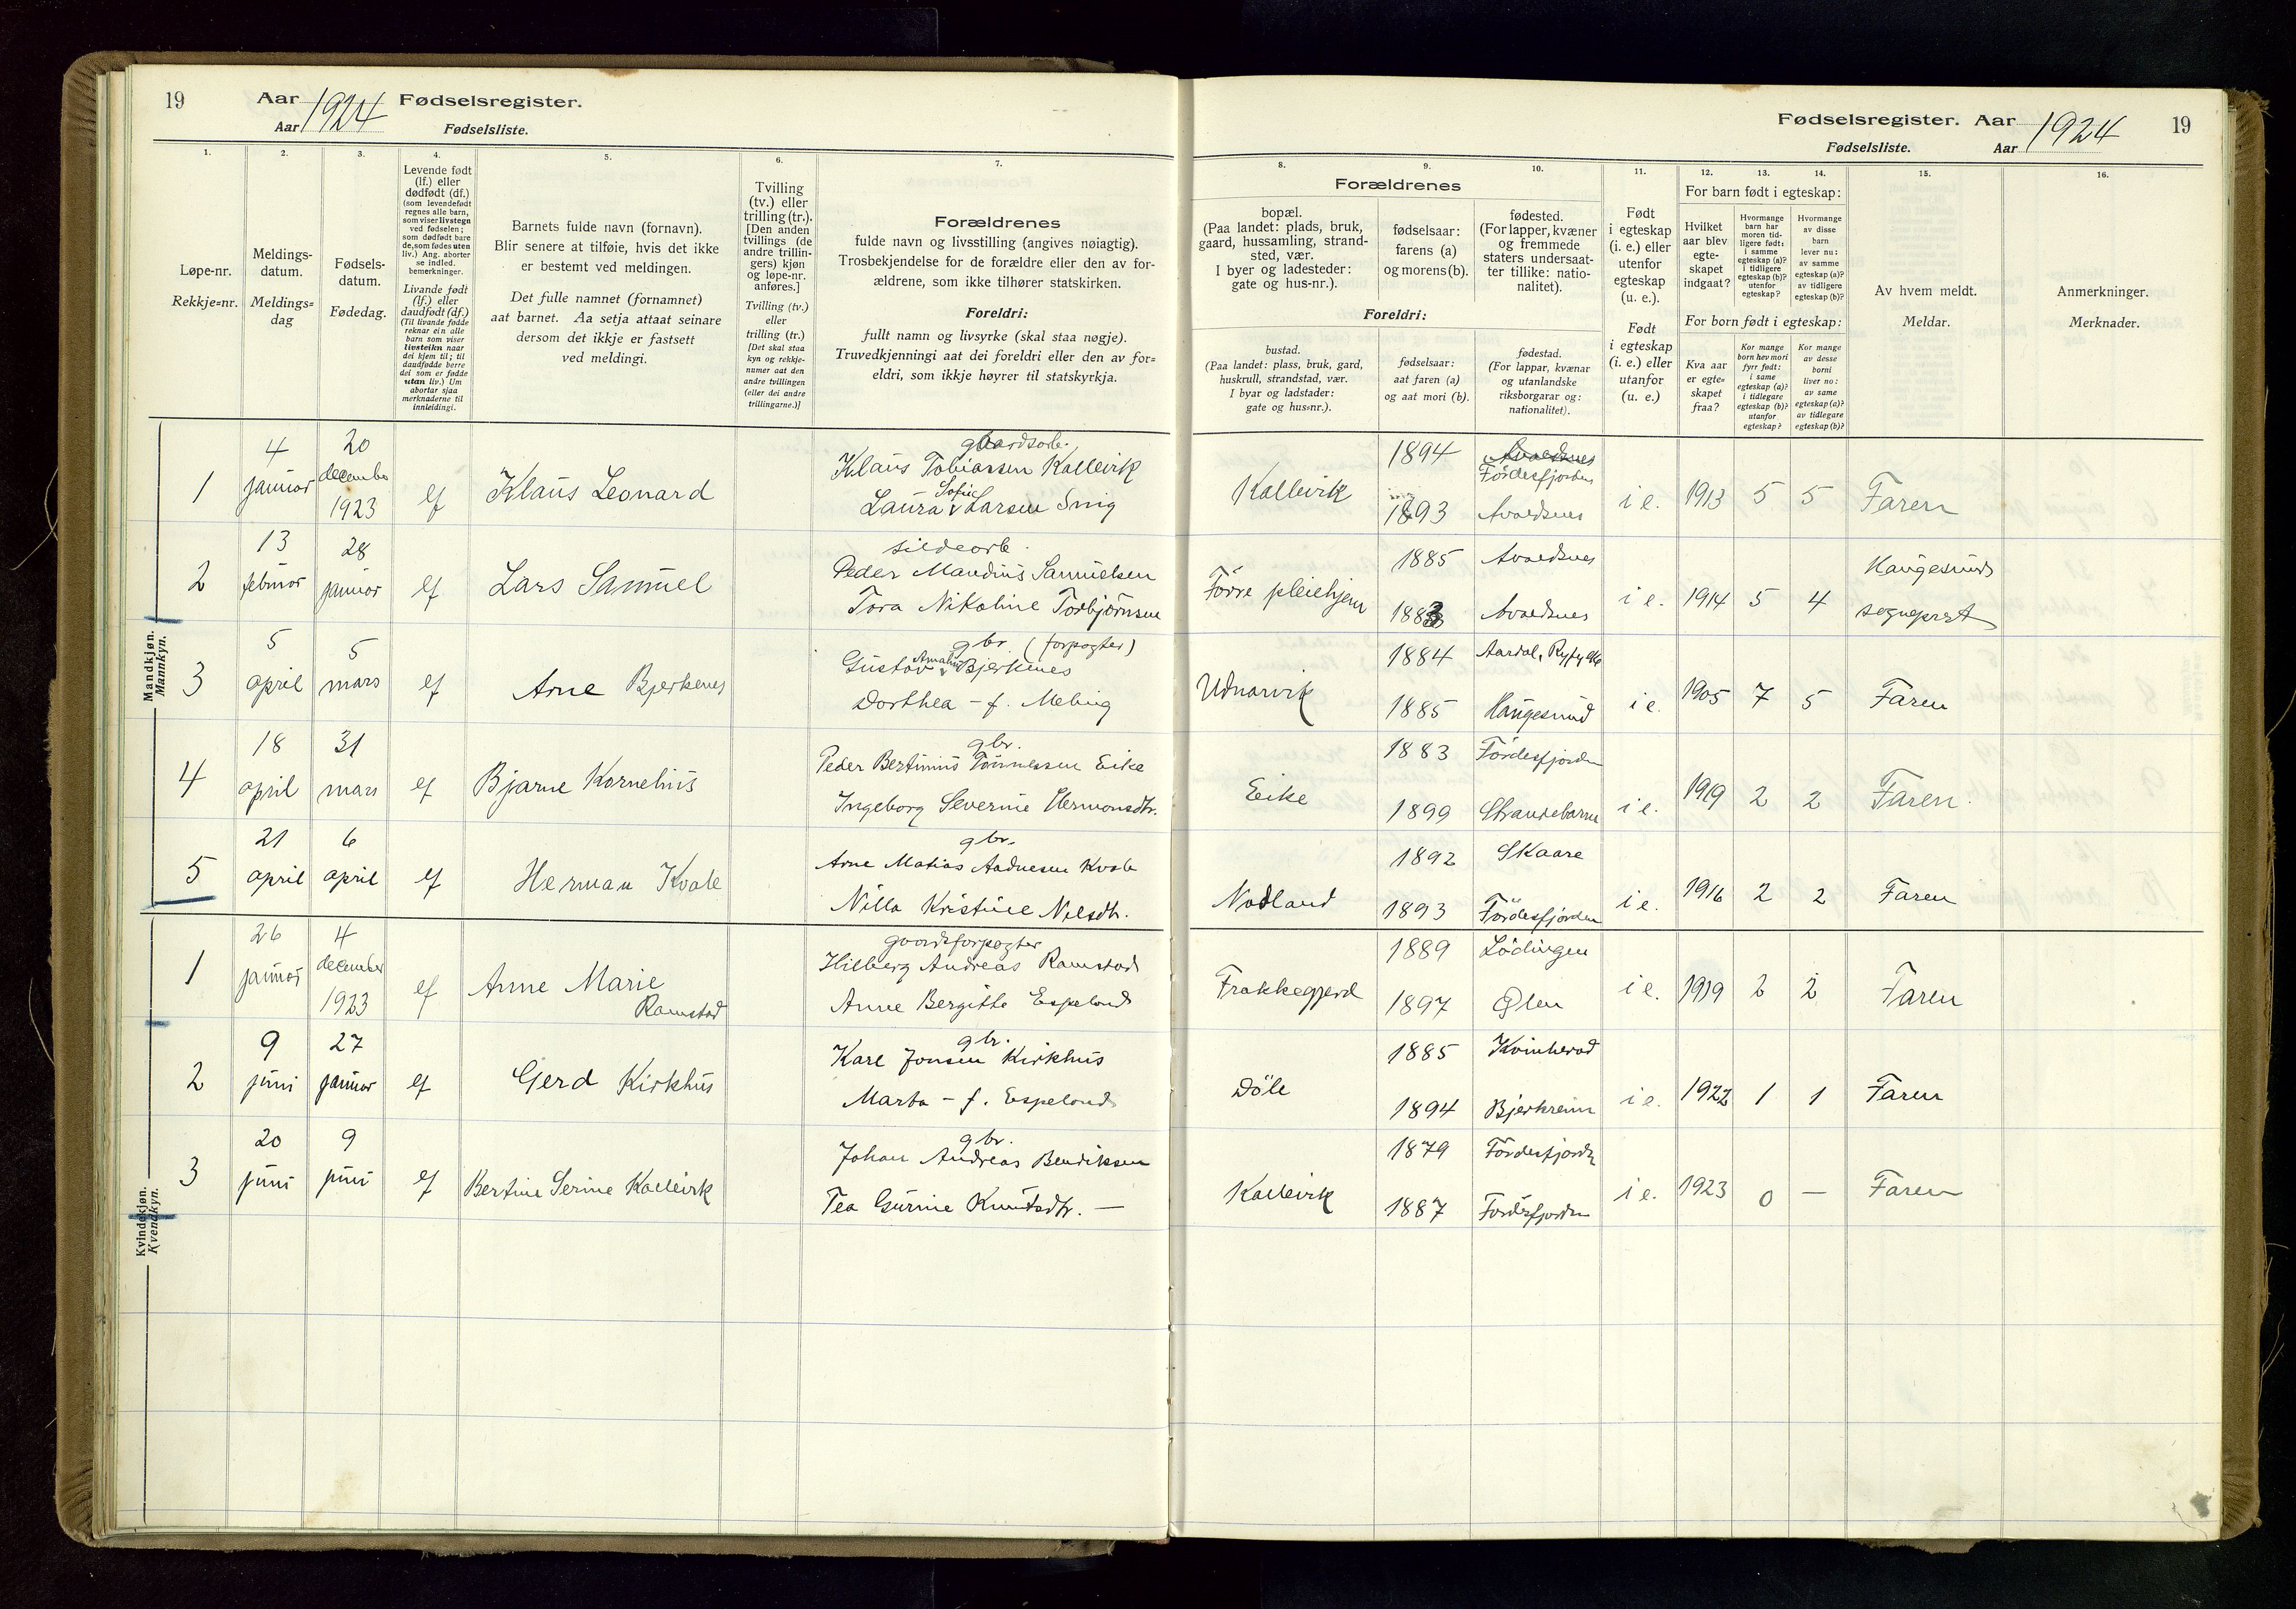 19 Aar 1924 Fødselsregister.
Aar Fødselsliste.
1. 2. 3. 4. 5. 6. 7.
Løpe-nr.
Rekkje=nr.
Meldings-
datum.
Meldings=
dag
Fødsels-
datum.
Fødedag.
Levende født
(lf.) eller
dødfødt (df.)
(som levendefødt
regnes alle barn,
som viser livstegn
ved fødselen;
som dødfødt bare
de, som fødes uten
liv.) Ang. aborter
se indled.
bemerkninger.
Livande født
(lf.) eller
daudfødt (df.)
(Til livande fødde
reknar ein alle
barn som viser
livsteikn naar
dei kjem til; til
daudfødde berre
dei som er fødde
utan liv.) Um
abortar sjaa
merknaderne til
innleidingi.
Barnets fulde navn (fornavn).
Blir senere at tilføie, hvis det ikke
er bestemt ved meldingen.
Det fulle namnet (fornamnet)
aat barnet. Aa setja attaat seinare
dersom det ikkje er fastsett
ved meldingi.
Tvilling
(tv.) eller
trilling (tr.).
[Den anden
tvillings (de
andre trillin-
gers) kjøn
og løpe-nr.
anføres.]
Tvilling (tv.)
eller
trilling (tr.)
[Det skal staa
kyn og rekkje-
numer aat den
andre tvillingen
(eller dei andre
trillingarne.)]
Forældrenes
fulde navn og livsstilling (angives nøiagtig).
Trosbekjendelse for de forældre eller den av for-
ældrene, som ikke tilhører statskirken.
Foreldri:
fullt namn og livsyrke (skal staa nøgje).
Truvedkjenningi aat dei foreldri eller den av for=
eldri, som ikkje høyrer til statskyrkja.
Mandkjøn.
Mannkyn.
1
4
januar
20
december
1923
lf
Klaus Leonard
gaardsarb.
Klaus Tobiassen Kallevik
Sofie
Laura Larsen Snig
2
13
februar
28
januar
lf
Lars Samuel
sildearb.
Peder Mandius Samuelsen
Tora Nikoline Torbjørnsen
3
5
april
5
mars
lf
Arne Bjerkenes
gbr. (forpagter)
Amalius
Gustav Bjerkenes
Dorthea - f. Meling
4
18
april
31
mars
lf
Bjarne Kornelius
gbr.
Peder Bertinius Tønnessen Eike
Ingeborg Severine Hermonsdtr.
5
21
april
6
april
lf
Herman Kvale
gbr.
Arne Matias Aadnesen Kvale
Nilla Kristine Nilsdtr.
Kvindekjøn.
Kvendkyn.
1
26
januar
4
december
1923
lf
Anne Marie
Ramstad
gaardsforpagter
Hilberg Andreas Ramstad
Anne Bergitte Espeland
2
9
juni
27
januar
lf
Gerd Kirkhus
gbr.
Karl Jonsen Kirkhus
Marta - f. Espeland
3
20
juni
9
juni
lf
Bertine Serine Kallevik
gbr.
Johan Andreas Bendiksen
Tea Gurine Knutsdtr. —
Fødselsregister. Aar 1924 19
Fødselsliste. Aar
8. 9. 10. 11. 12. 13. 14. 15. 16.
Forældrenes
bopæl.
(Paa landet: plads, bruk,
gaard, hussamling, strand-
sted, vær.
I byer og ladesteder:
gate og hus-nr.).
fødselsaar:
farens (a)
og morens (b).
fødested.
(For lapper, kvæner
og fremmede
staters undersaat-
ter tillike: natio-
nalitet).
Foreldri:
bustad.
(Paa landet: plass, bruk, gard,
huskrull, strandstad, vær.
I byar og ladstader:
gate og hus=nr.).
fødselsaar:
aat faren (a)
og aat mori (b).
fødestad.
(For lappar, kvænar
og utanlandske
riksborgarar og:
nationalitet).
Født
i egteskap
(i. e.) eller
utenfor
egteskap
(u. e.).
Født
i egteskap
(i. e.) eller
utanfor
(u. e.)
For barn født i egteskap:
Hvilket
aar blev
egte-
skapet
indgaat?
Hvormange
barn har
moren tid-
ligere født:
i samme
egteskap (a)?
i tidligere
egteskap (b)?
utenfor
egteskap?
Hvormange
av disse
barn
lever nu:
av samme
egteskap (a)?
av tidligere
egteskap (b)?
For born født i egteskap:
Kva aar
er egte=
skapet
fraa?
Kor mange
born hev mori
fyrr født:
i same
egteskap (a)?
i tidlegare
egteskap (b)?
utanfor
egteskap?
Kor mange
av desse
borni
liver no:
av same
egteskap (a)?
av tidlegare
egteskap (b)?
Av hvem meldt.
Meldar.
Anmerkninger.
Merknader.
Kallevik
1894
1893
Avaldsnes
Førdesfjorden
Avaldsnes
i e. 1913 5 5 Faren
Førre pleiehjem
1885
1883
Avaldsnes
Avaldsnes
i e. 1914 5 4
Haugesunds
sogneprest
Udnarvik
1884
1885
Aardal, Ryfylke
Haugesund
i e. 1905 7 5 Faren
Eike
1883
1899
Førdesfjorden
Strandebarm
i e. 1919 2 2 Faren.
Nodland
1892
1893
Skaare
Førdesfjorden
i e. 1916 2 2 Faren
Frakkagjerd
1889
1897
Lödingen
Ølen
i e. 1919 2 2 Faren
Döle
1885
1894
Kvinherad
Bjerkreim
i e. 1922 1 1 Faren
Kallevik
1879
1887
Førdesfjorden
Førdesfjorden
i e. 1923 0 — Faren